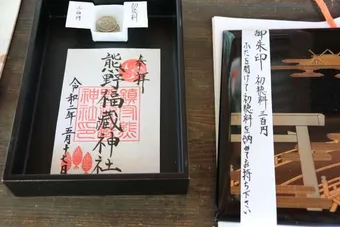 初穂料
三百円
奉拝
熊野福藏神社
令和二年五月十七日
御朱印 初穂料 三百円
ふたを開けて初穂料を納めてお持ち下さい